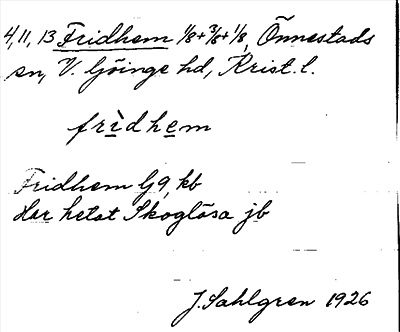 4, 11, 13 Fridhem 1/8 + 3/8 + 1/8, Önnestads
sn, V. Göinge hd, Krist. l.
frìdhem
Fridhem G 9, kb
Har hetat Skoglösa jb
J. Sahlgren 1926